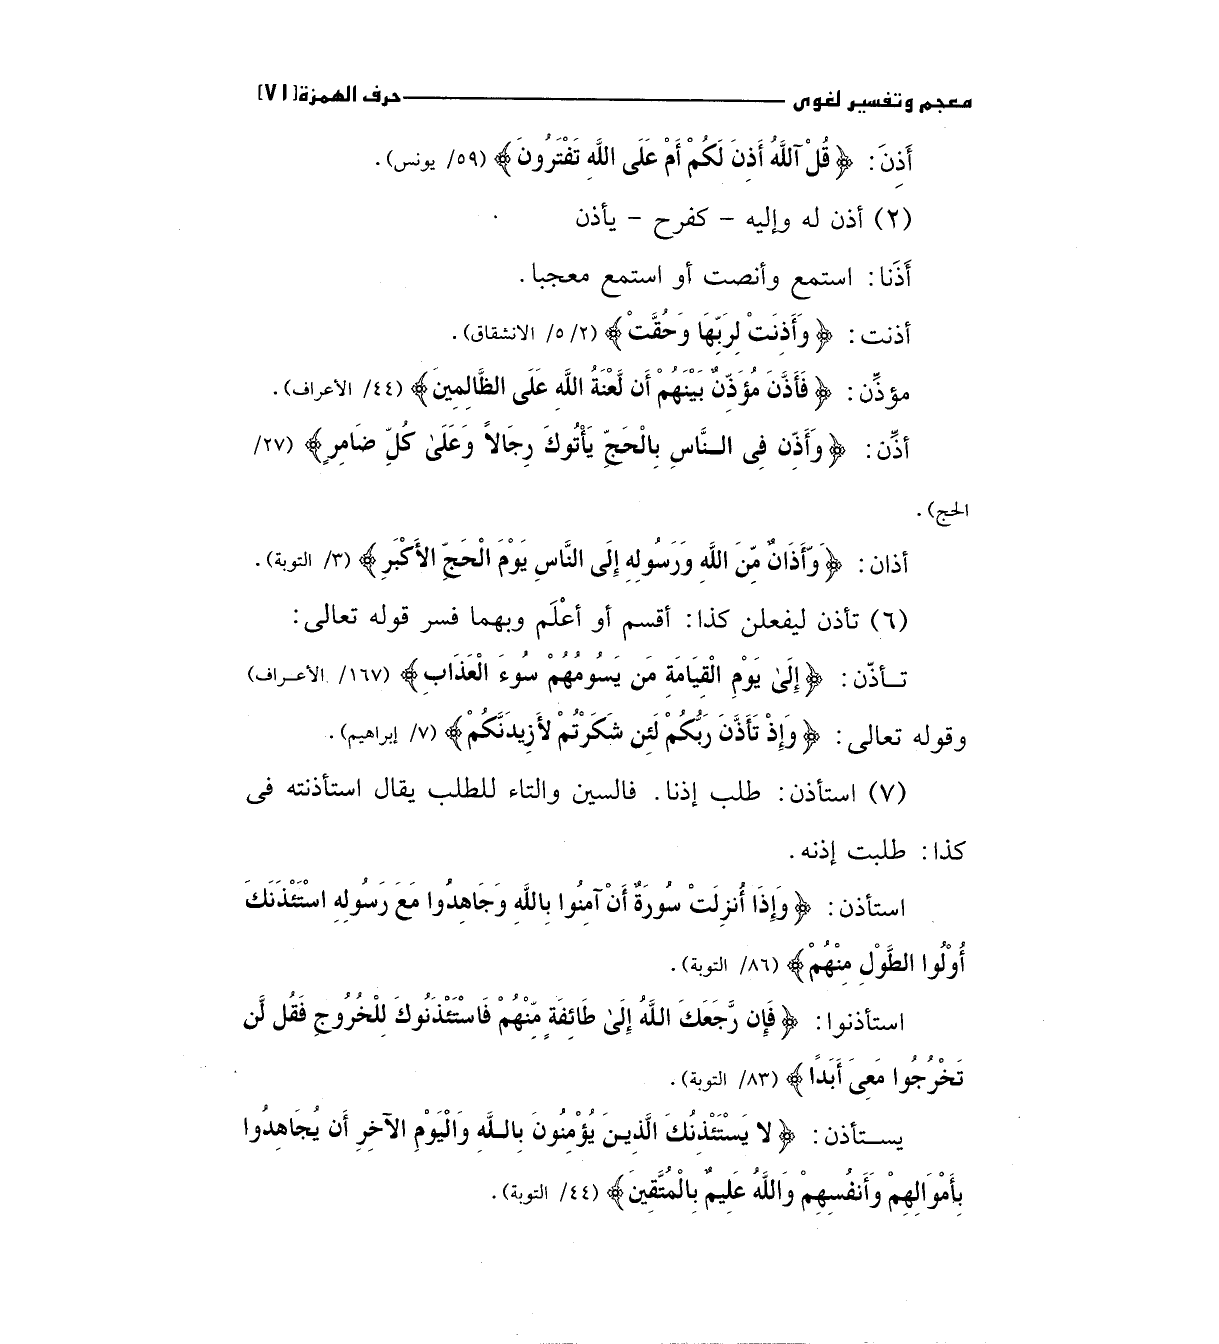 معجم وتفسير لغوى ــــــ حرف الهمزة [٧١]
أَذِنَ: ﴿قُلْ آللَّهُ أَذِنَ لَكُمْ أَمْ عَلَى اللَّهِ تَفْتَرُونَ﴾ (٥٩/ يونس).
(٢) أذن له وإليه - كفرح - يأذن
أَذَنا: استمع وأنصت أو استمع معجبا.
أذنت: ﴿وَأَذِنَتْ لِرَبِّهَا وَحُقَّتْ﴾ (٥/٢/ الانشقاق).
مؤذِّن: ﴿فَأَذَّنَ مُؤَذِّنٌ بَيْنَهُمْ أَن لَّعْنَةُ اللَّهِ عَلَى الظَّالِمِينَ﴾ (٤٤/ الأعراف).
أذِّن: ﴿وَأَذِّن فِى النَّاسِ بِالْحَجِّ يَأْتُوكَ رِجَالاً وَعَلَىٰ كُلِّ ضَامِرٍ﴾ (٢٧/
الحج).
أذان: ﴿وَأَذَانٌ مِّنَ اللَّهِ وَرَسُولِهِ إِلَى النَّاسِ يَوْمَ الْحَجِّ الأَكْبَرِ﴾ (٣/ التوبة).
(٦) تأذن ليفعلن كذا: أقسم أو أعْلَم وبهما فسر قوله تعالى:
تأذّن: ﴿إِلَىٰ يَوْمِ الْقِيَامَةِ مَن يَسُومُهُمْ سُوءَ الْعَذَابِ﴾ (١٦٧/ الأعراف)
وقوله تعالى: ﴿وَإِذْ تَأَذَّنَ رَبُّكُمْ لَئِن شَكَرْتُمْ لأَزِيدَنَّكُمْ﴾ (٧/ إبراهيم).
(٧) استأذن: طلب إذنا. فالسين والتاء للطلب يقال استأذنته فى
كذا: طلبت إذنه.
استأذن: ﴿وَإِذَا أُنزِلَتْ سُورَةٌ أَنْ آمِنُوا بِاللَّهِ وَجَاهِدُوا مَعَ رَسُولِهِ اسْتَئْذَنَكَ
أُوْلُوا الطَّوْلِ مِنْهُمْ﴾ (٨٦/ التوبة).
استأذنوا: ﴿فَإِن رَّجَعَكَ اللَّهُ إِلَىٰ طَائِفَةٍ مِّنْهُمْ فَاسْتَئْذَنُوكَ لِلْخُرُوجِ فَقُل لَّن
تَخْرُجُوا مَعِىَ أَبَدًا﴾ (٨٣/ التوبة).
يستأذن: ﴿لا يَسْتَئْذِنُكَ الَّذِينَ يُؤْمِنُونَ بِاللَّهِ وَالْيَوْمِ الآخِرِ أَن يُجَاهِدُوا
بِأَمْوَالِهِمْ وَأَنفُسِهِمْ وَاللَّهُ عَلِيمٌ بِالْمُتَّقِينَ﴾ (٤٤/ التوبة).